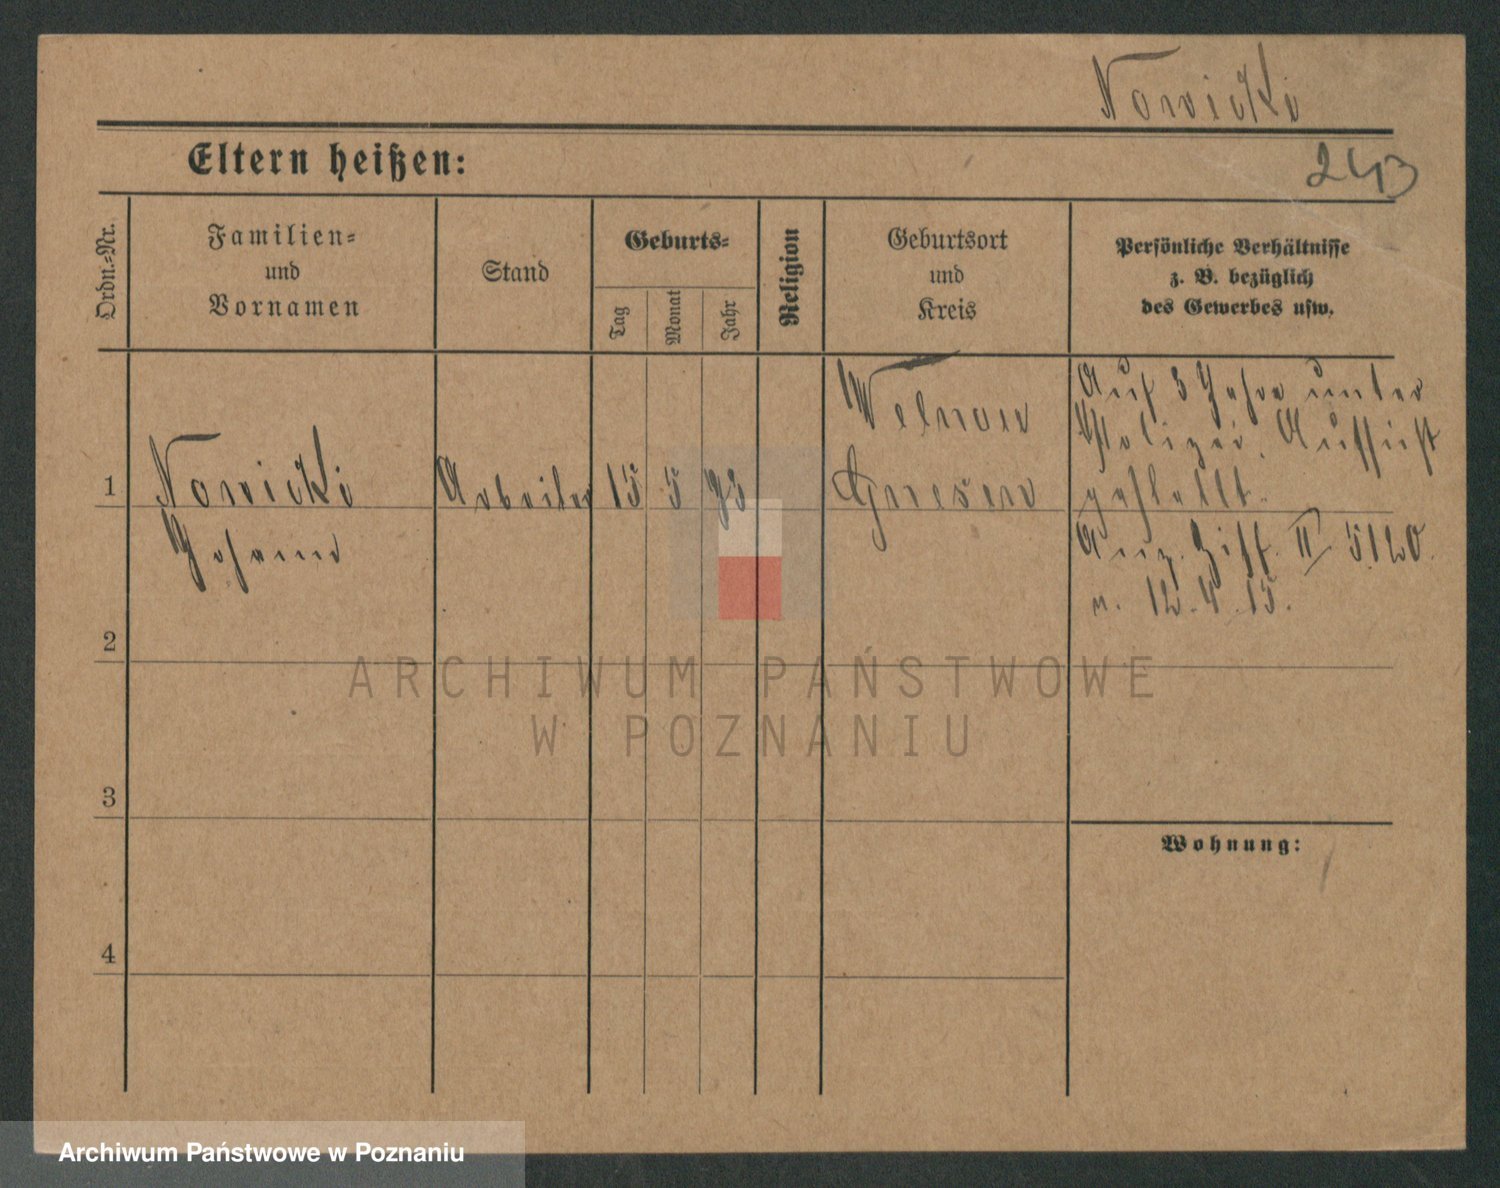 Nowicki
Eltern heißen:
243
Ordn.-Nr.
Familien-
und
Vornamen
Stand
Geburts-
Tag
Monat
Jahr
Religion
Geburtsort
und
Kreis
Persönliche Verhältnisse
z. B. bezüglich
des Gewerbes usw.
1
Nowicki
Johann
Arbeiter
15
5
Welnau
Gnesen
Auf 3 Jahre unter
Polizei Aufsicht
gestellt.
Anz. Ziff. II 5120
v. 12.4.15.
2
3
4
Wohnung:
ARCHIWUM PAŃSTWOWE
W POZNANIU
Archiwum Państwowe w Poznaniu